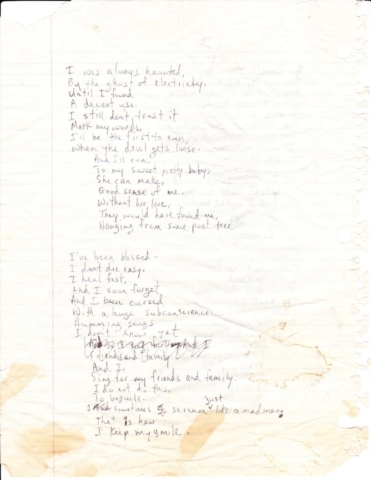 I was always haunted,
By the ghost of electricity.
Until I found
A decent use.
I still don't trust it
Mark my words,
I'll be the first to run,
When the devil gets loose.
And I'll run,
To my sweet pretty baby,
She can make,
Good sense of me.
Without her love,
They would have found me,
Hanging from some poet tree
I've been blessed
I don't die easy.
I heal fast,
And I soon forget
And I been cursed
With a huge subconscience.
Humming songs
I don't know yet
And I
friends and family
And I,
Sing for my friends and family.
I do not do this,
To beguile.
And sometimes I just scream like a mad man,
That is how
I keep my smile.